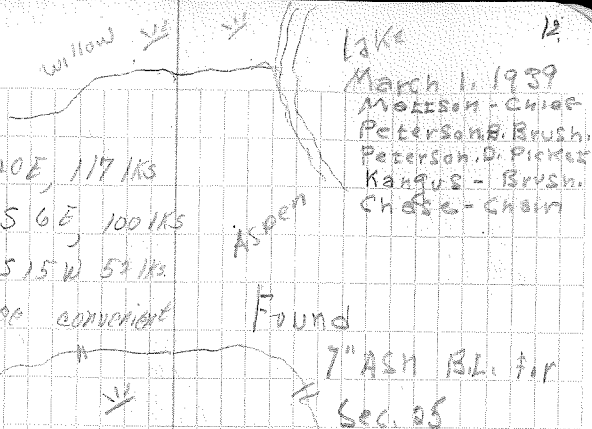 12
Lake
willow
March 1, 1939
Mattson - Chief
Peterson B. Brush.
Peterson. D. Picket
Kangus - Brush.
Chase - Chain
10E, 117 lks
S 6 E, 100 lks
Aspen
S 15 W 57 lks.
convenient
Found
7" ASH B.L. tir
Sec. 25